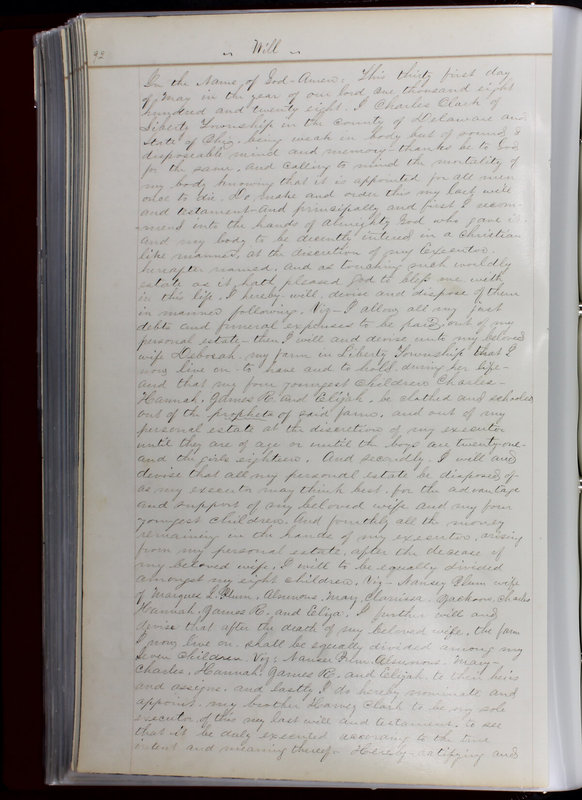 92
Will
In the Name of God - Amen: This thirty first day
of May in the year of our lord one thousand eight
hundred and twenty eight. I Charles Clark of
Liberty Township in the County of Delaware and
State of Ohio, being weak in body but of sound &
disposeable mind and memory - thanks be to God
for the same, and calling to mind the mortality of
my body knowing that it is appointed for all men
once to die. Do, make and order this my last will
and testament - And principally and first I recom-
mend into the hands of Almighty God who gave it.
And my body to be decently intered in a Christian
like manner, at the discretion of my Executor
hereafter named. And as touching such worldly
estate as it hath pleased God to bless me with
in this life. I hereby will, devise and dispose of them
in manner following. Viz - I allow all my just
debts and funeral expenses to be paid, out of my
personal estate - then I will and devise unto my beloved
wife Deborah, my farm in Liberty Township that I
now live on - to have and to hold, during her life -
and that my four youngest children Charles -
Hannah. James R. and Elijah, be clothed and schooled
out of the prophets of said farm, and out of my
personal estate at the discretion of my executor
until they are of age or until the boys are twenty-one -
and the girls eighteen. And secondly. I will and
devise that all my personal estate be disposed of -
as my executor may think best, for the advantage
and support of my beloved wife and my four
youngest children. And fourthly all the money
remaining in the hands of my executor, arising
from my personal estate, after the decease of
my beloved wife, I will to be equally divided
amongst my eight children. Viz - Nansey Plum wife
of Marques L. Plum. Mary, Clarrisa. Jackson, Charles
Hannah. James R. and Eliza. I further will and
devise that after the death of my beloved wife, the farm
I now live on shall be equally divided among my
seven children Viz: Plum. Mary -
Charles. Hannah. James R. and Elijah to their heirs
and assigns. and lastly I do hereby nominate and
appoint my brother Harvey Clark to be my sole
executor of this my last will and testament, to see
that it be duly executed according to the true
intent and meaning thereof. Hereby ratifying and